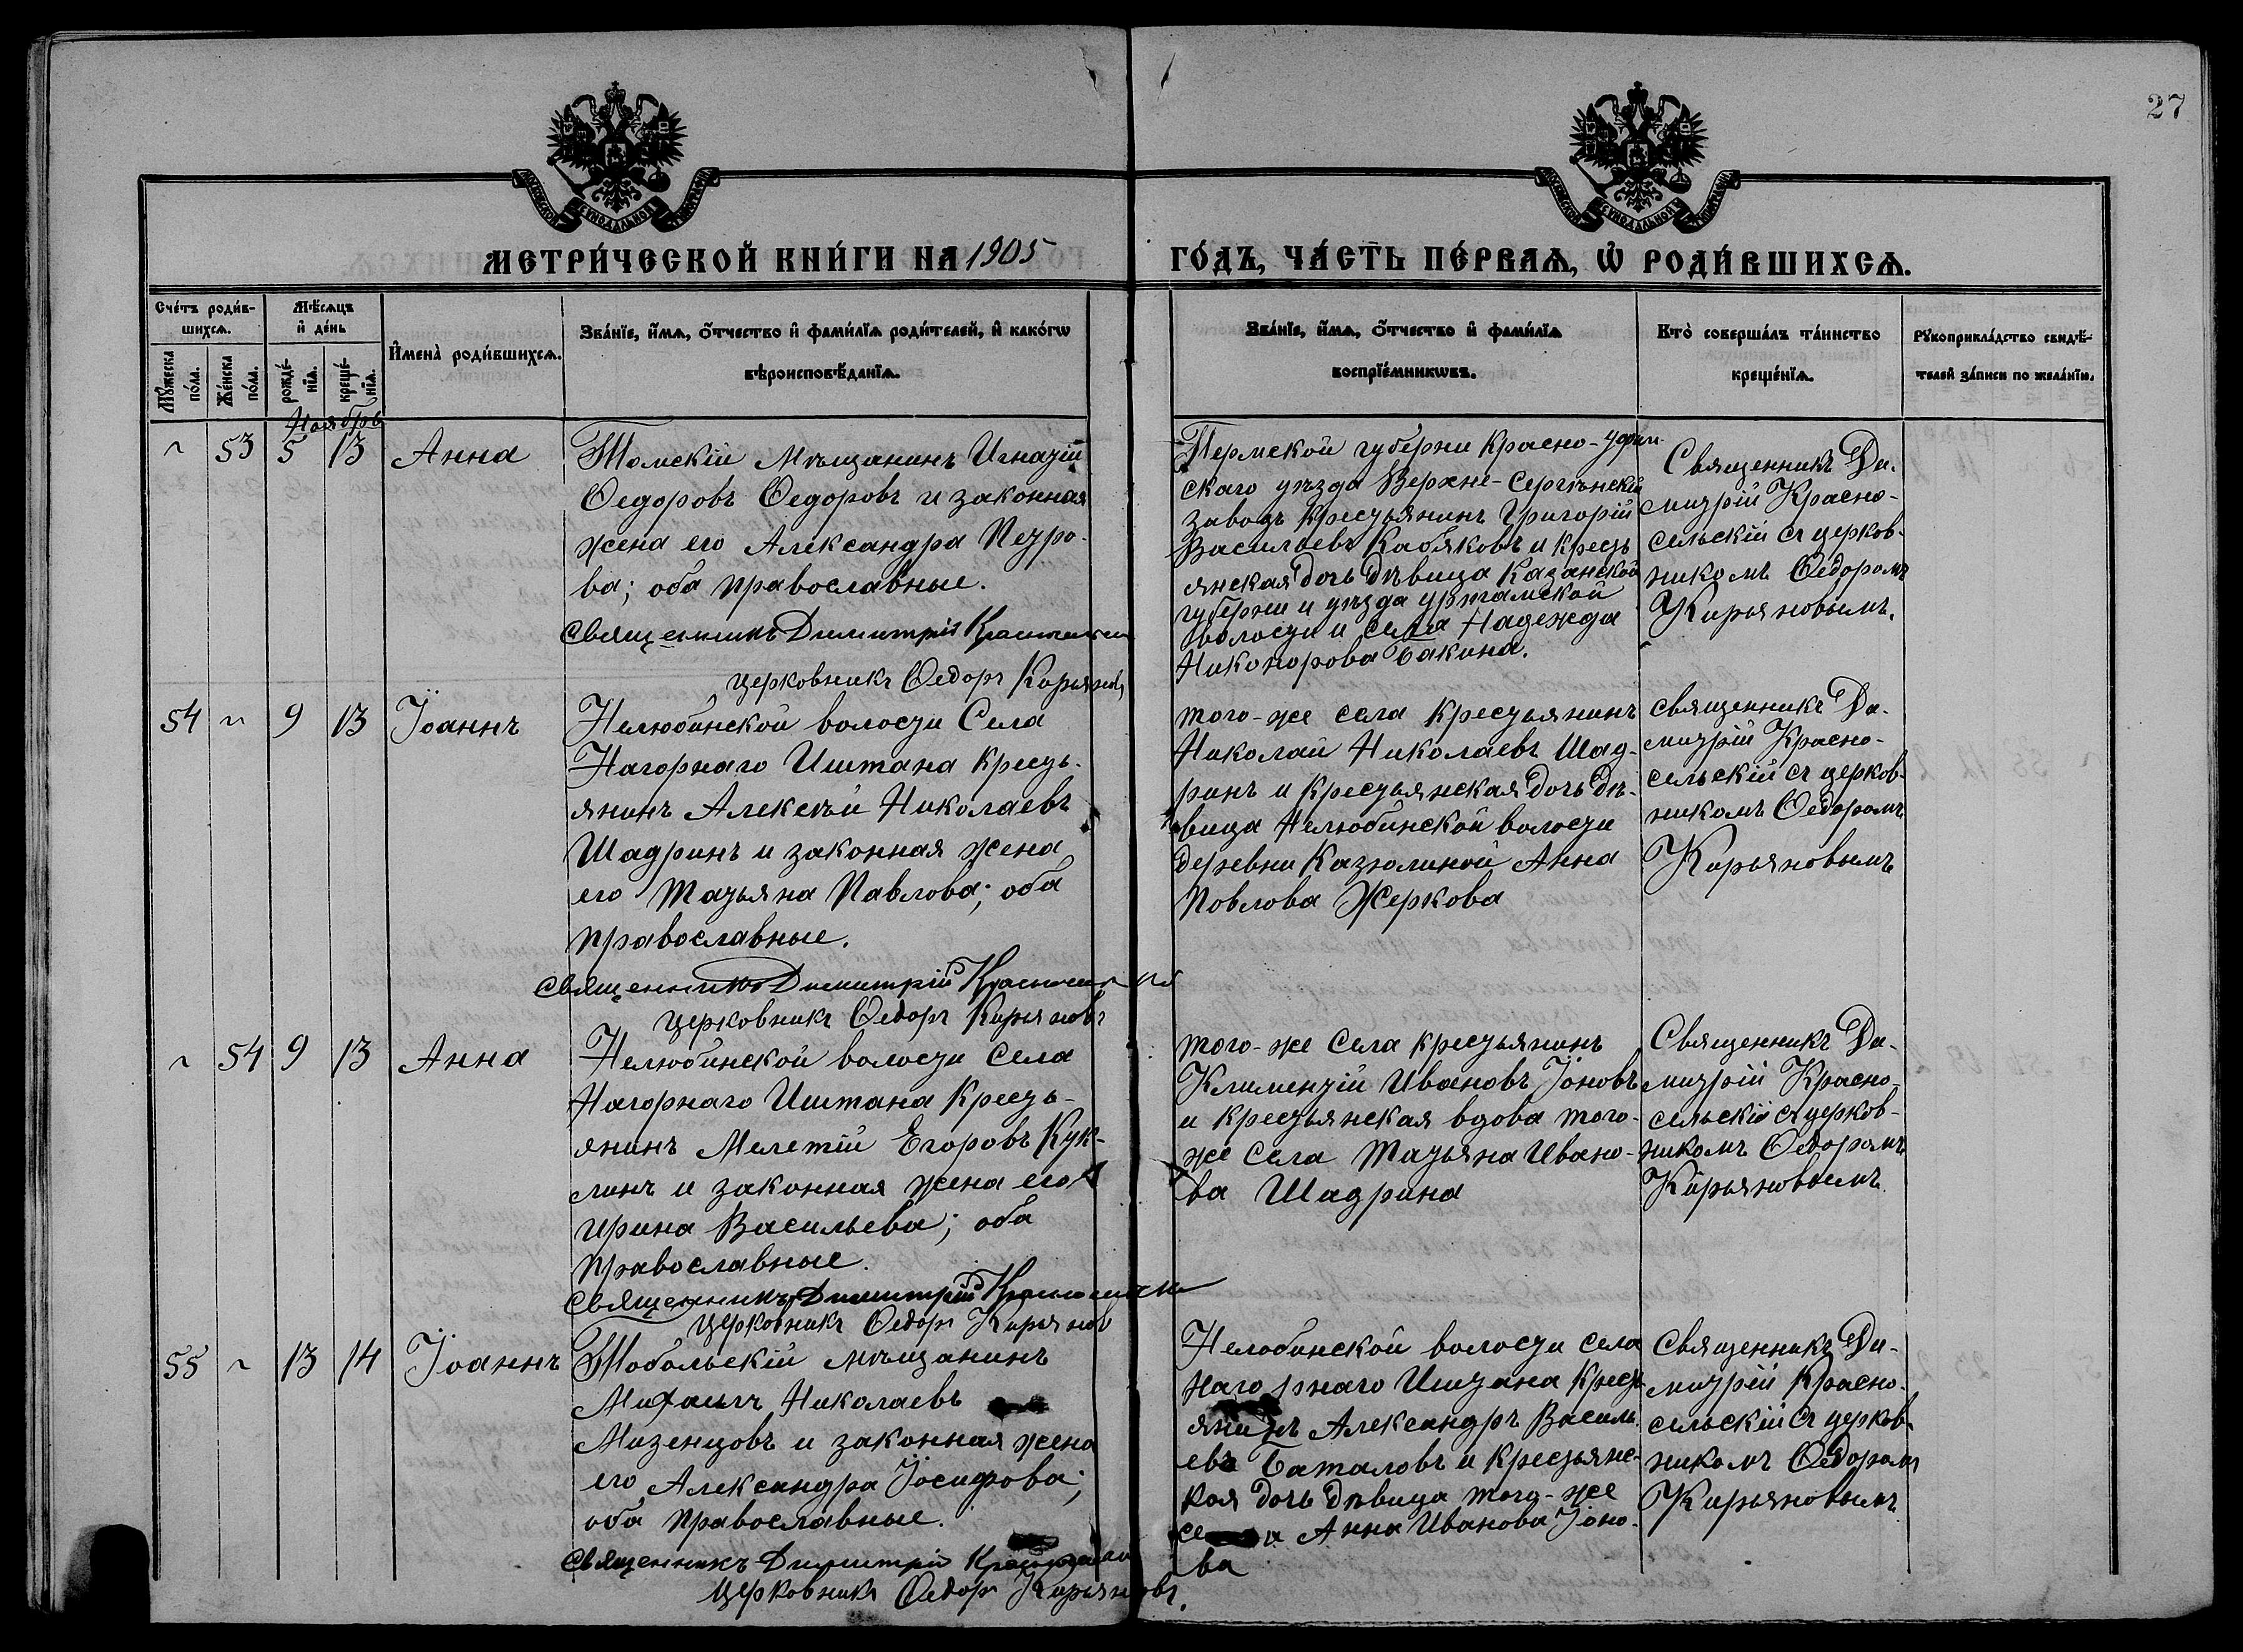 27
МЕТРИ́ЧЕСКОЙ КНИ́ГИ НА 1905
ГО́ДЪ, ЧА́СТЬ ПЕ́РВАѦ, Ѡ҆ РОДИ́ВШИХСѦ.
Сче́тъ роди́в-
шихсѧ.
Мꙋ́жеска
по́ла.
Же́нска
по́ла.
Мѣ́сѧцъ
и҆ де́нь
рожде́-
нїѧ.
креще́-
нїѧ.
И҆мена̀ роди́вшихсѧ.
Зва́нїе, и҆́мѧ, ѻ҆́тчество и҆ фами́лїѧ роди́телей, и҆ како́гѡ
вѣроисповѣ́данїѧ.
Зва́нїе, и҆́мѧ, ѻ҆́тчество и҆ фами́лїѧ
воспрїе́мникѡвъ.
Кто̀ соверша́лъ та́инство
креще́нїѧ.
Рꙋкоприкла́дство свидѣ́-
телей за́писи по жела́нїю.
Ноябрь
53 5 13 Анна
Томскій мѣщанинъ Игнатій
Ѳедоровъ Ѳедоровъ и законная
жена его Александра Петро-
ва; оба православные.
Священникъ Димитрій Красносельскій
Церковникъ Ѳедоръ Кирьяновъ
Пермской губерни Красно-уфим-
скаго уѣзда Верхне-Сергѣнскій
заводъ крестьянинъ Григорій
Васильевъ Кабяковъ и кресть
янская дочь дѣвица Казанской
губерни и уѣзда
волости и села Надежда
Никонорова Бакина.
Священникъ Ди-
митрій Красно-
сельскій съ церков-
никомъ Ѳедоромъ
Кирьяновымъ.
54 9 13 Іоаннъ
Нелюбинской волости Села
Нагорнаго Иштана кресть-
янинъ Алексѣй Николаевъ
Шадринъ и законная жена
его Татьяна Павлова; оба
православные.
Священникъ Димитрій Красносельскій
Церковникъ Ѳедоръ Кирьяновъ
того-же села крестьянинъ
Николай Николаевъ Шад-
ринъ и крестьянская дочь дѣ-
вица Нелюбинской волости
деревни Казюлиной Анна
Повлова Жеркова
священникъ Ди-
митрій Красно-
сельскій съ церков-
никомъ Ѳедоромъ
Кирьяновымъ
54 9 13 Анна
Нелюбинской волости Села
Нагорнаго Иштана кресть-
янинъ Мелетій Егоровъ Кук-
линъ и законная жена его
Ирина Васильева; оба
православные.
Священникъ Димитрій Красносельскій
Церковникъ Ѳедоръ Кирьянов
того-же Села крестьянинъ
Климентій Ивановъ Іоновъ
и крестьянская вдова того-
же Села Татьяна Ивано-
ва Шадрина
Священникъ Ди-
митрій Красно-
сельскій съ церков-
никомъ Ѳедоромъ
Кирьяновымъ
55 13 14 Іоаннъ
Тобольскій мѣщанинъ
Михаилъ Николаевъ
Мизенцовъ и законная жена
его Александра Іосифова;
оба православные.
Священникъ Димитрій Красносельскій
Церковникъ Ѳедоръ Кирьяновъ.
Нелобинской волости села
Нагорнаго Иштана кресть
янинъ Александръ Василь
евъ Баталовъ и крестьянс-
кая дочь дѣвица того-же
села Анна Иванова Іоно-
ва
Священникъ Ди-
митрій Красно-
сельскій съ церков-
никомъ Ѳедоромъ
Кирьяновымъ